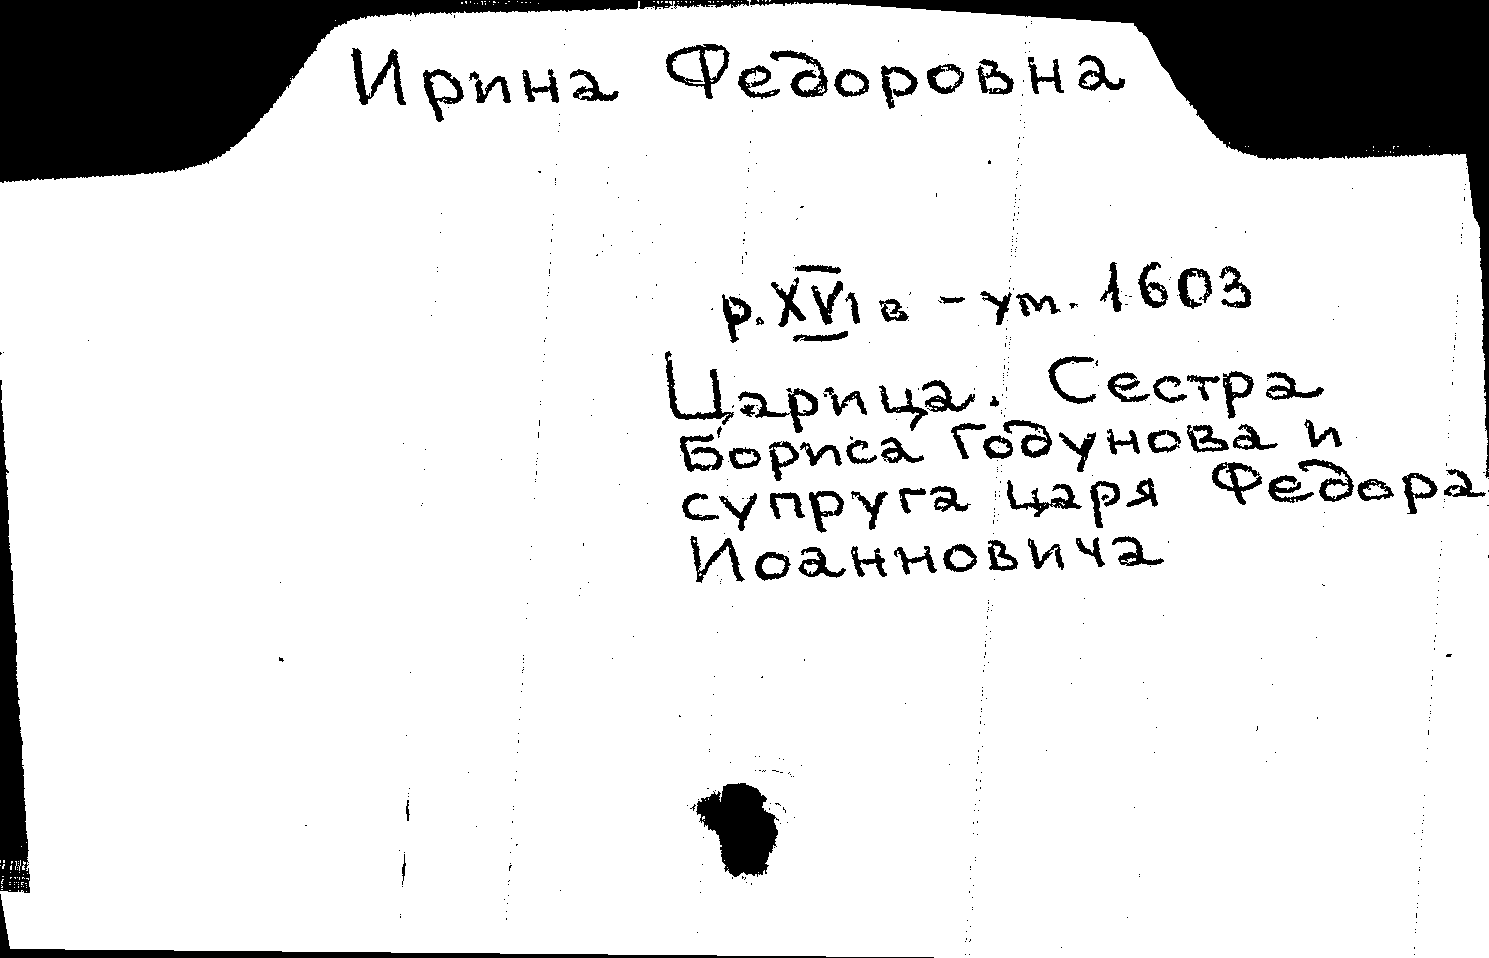 Ирина Федоровна
р. XVI в - ут. 1603
Царица. Сестра
Бориса Годунова и
супруга царя Федора
Иоанновича